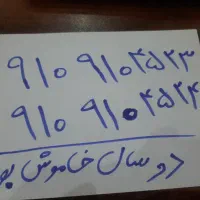 ۹۱۰ ۹۱۰ ۴۵۲۳
۹۱۰ ۹۱۰ ۴۵۲۴
دو سال خاموش